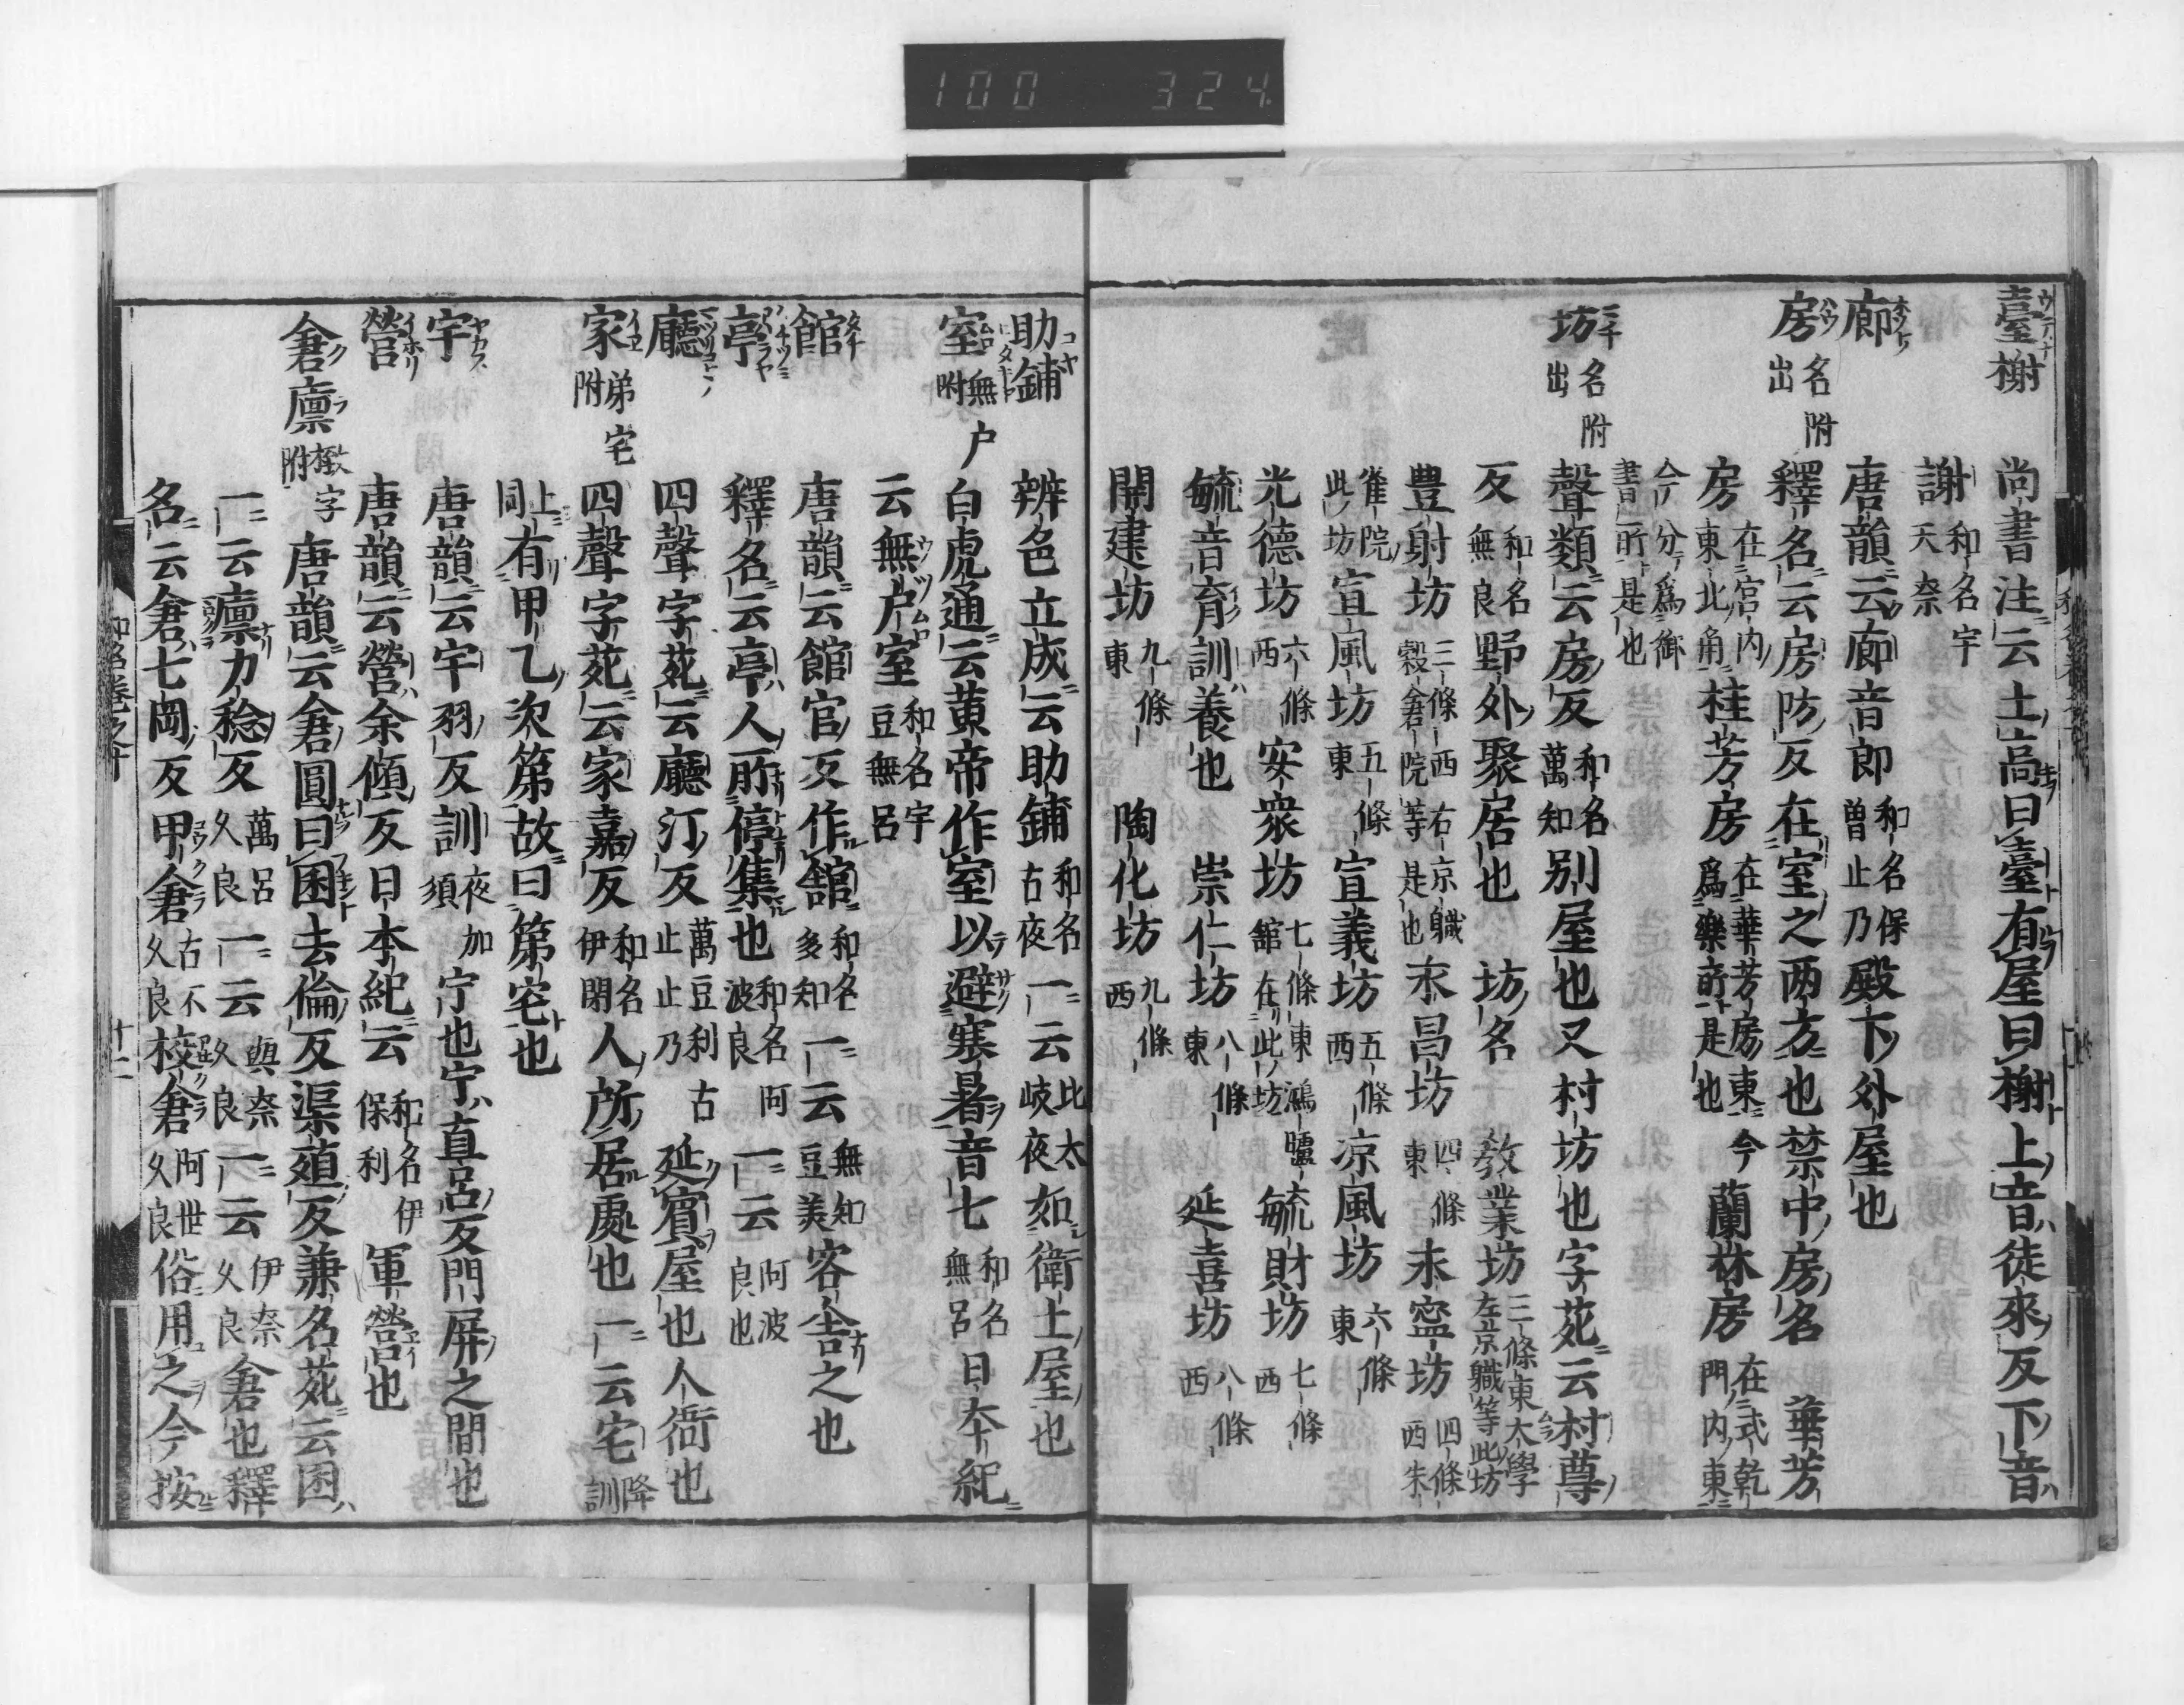 100 324
臺榭 尚書注云土高曰臺有屋曰榭上音徒來反下音
謝 和名宇天奈
廊 唐韻云廊音郎 和名保曽止乃 殿下外屋也
房 名附出 釋名云房防反在室之兩方也禁中房名 華芳
房 在宮内東北角 桂芳房 在華芳房東爲樂所是也 今 蘭林房 在式乾門内東
今分爲御書所是也
坊 名附出 聲類云房反 和名萬知 別屋也又村坊也字苑云村尊
反 和名無良 野外聚居也 坊名 教業坊 三條東大學左京職等此坊
豊財坊 三條西右京職穀倉院等是也 永昌坊 四條東 永寧坊 四條西朱
雀院此坊 宣風坊 五條東 宣義坊 五條西 凉風坊 六條東
光德坊 六條西 安衆坊 七條東鴻臚舘在此坊 毓財坊 七條西
毓音育訓養也 崇仁坊 八條東 延喜坊 八條西
開建坊 九條東 陶化坊 九條西
助鋪 コヤ 辨色立成云助鋪 和名古夜 一云 比太岐夜 如衛士屋也
室 無戸附 白虎通云黄帝作室以避寒暑音七 和名無呂 日本紀
云無戸室 和名宇豆無呂
館 タチ 唐韻云館官反作舘 和名多知 一云 無知豆美 客舎之也
亭 釋名云亭人所停集也 和名阿波良 一云 阿波良也
廳 四聲字苑云廳汀反 萬豆利古止止乃 延賓屋也人衙也
家 イヱ 弟宅附 四聲字苑云家嘉反 和名伊閉 人所居處也一云宅 降訓
上同 有甲乙次第故曰第宅也
宇 ヤカス 唐韻云宇羽反訓 夜加須 宁也宁直呂反門屏之間也
營 イホリ 唐韻云營余傾反日本紀云 和名伊保利 軍營也
倉廩 クラ 椒字附 唐韻云倉圓曰囷去倫反渠殖反兼名苑云囷
一云廩力稔反 萬呂久良 一云 與奈久良 一云 伊奈久良 倉也釋
名云倉七岡反甲倉 古不久良 校倉 阿世久良 俗用之今按
十二